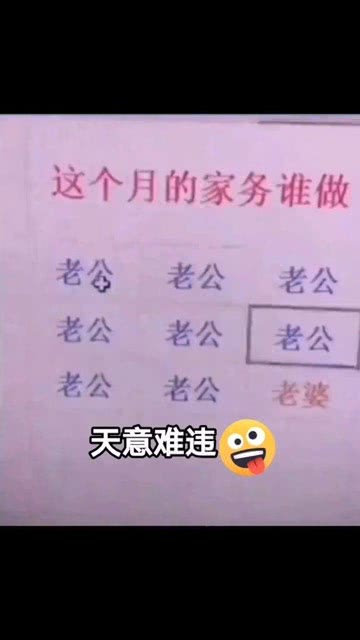 这个月的家务谁做
老公 老公 老公
老公 老公 老公
老公 老公 老婆
天意难违🤪